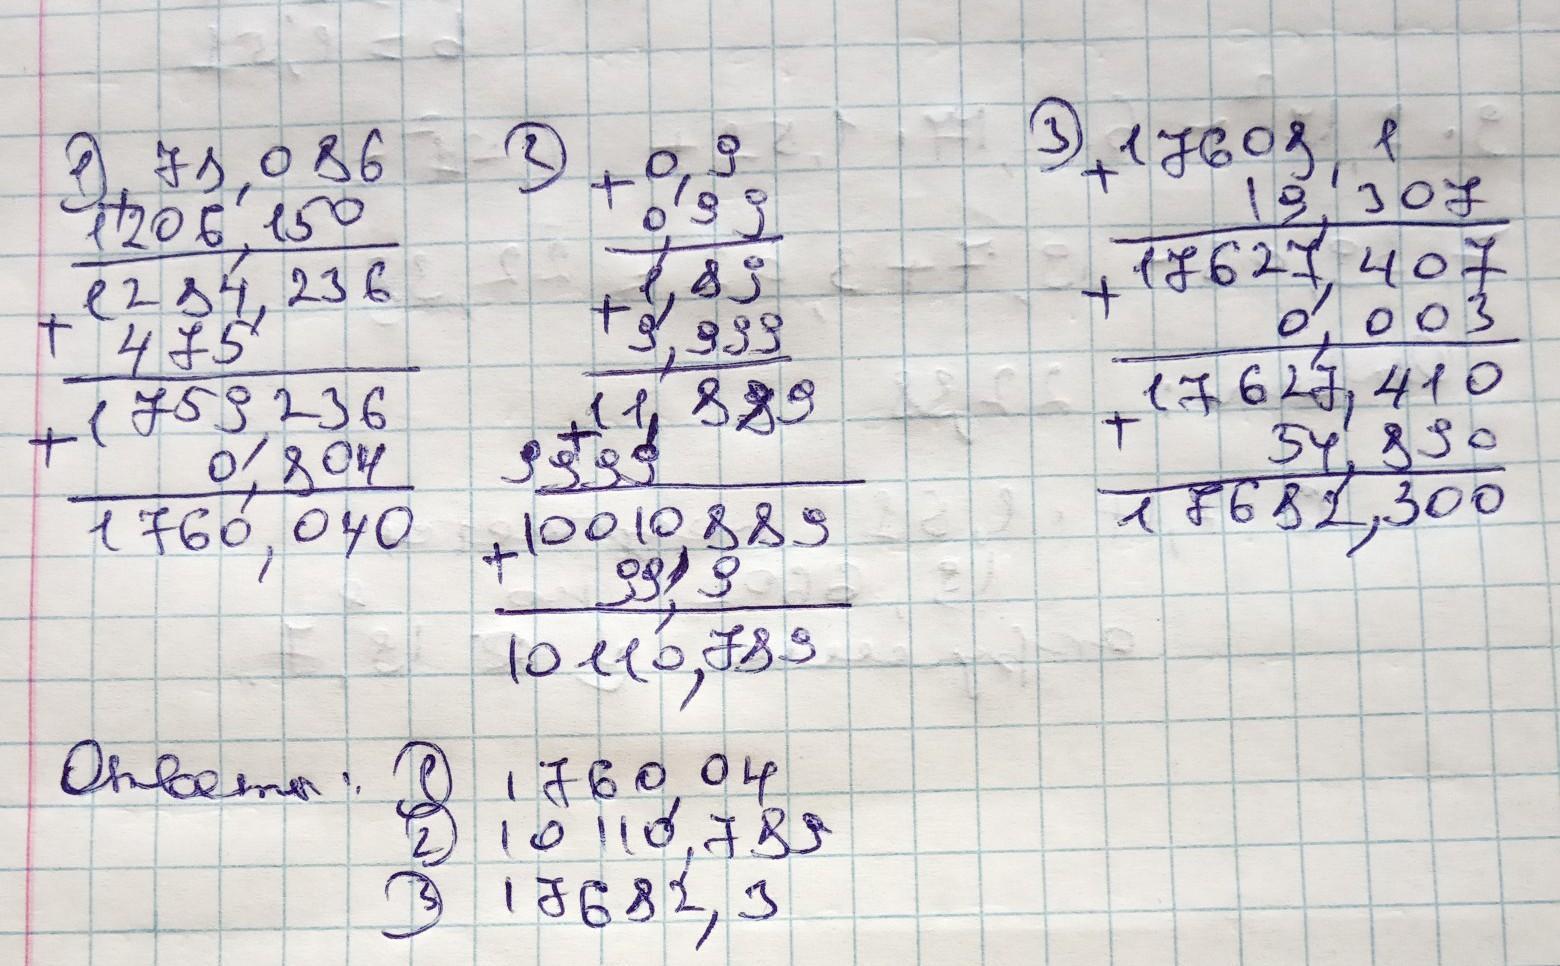 1) + 78,086
1206,150
1284,236
+ 475
1759,236
+ 0,804
1760,040
2) + 0,9
0,99
1,89
+ 9,999
11,889
+ 9999
10010,889
+ 99,9
10110,789
3) + 17608,1
19,307
17627,407
+ 0,003
17627,410
+ 54,890
17682,300
Ответы: 1) 1760,04
2) 10110,789
3) 17682,3